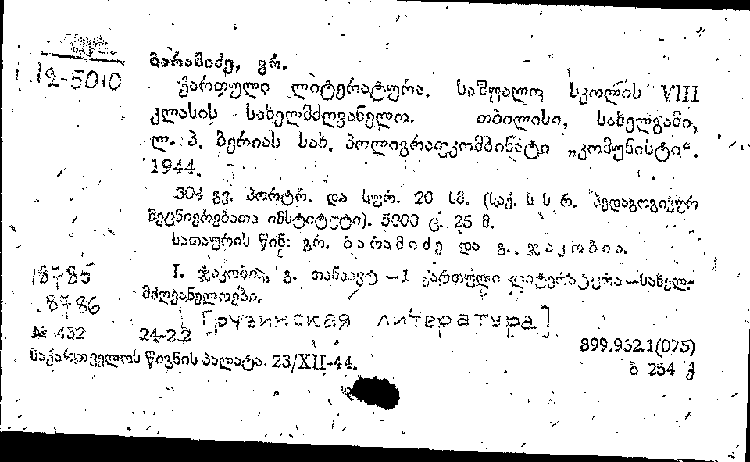 12-5010
ბარამიძე, გრ.
ქართული ლიტერატურა. საშუალო სკოლის VIII
კლასის სახელმძღვანელო. თბილისი, სახელგამი,
ლ. პ. ბერიას სახ. პოლიგრაფკომბინატი „კომუნისტი“.
1944.
304 გვ. პორტრ. და სურ. 20 სმ. (საქ. ს ს რ. პედაგოგიურ
მეცნიერებათა ინსტიტუტი). 5000 ც. 25 მ.
სათაურის წინ: გრ. ბარამიძე და გ. ჯაკობია.
I. ჯაკობია, გ. თანაავტ —1 ქართული ლიტერატურა—სახელ-
მძღვანელოები.
18785
8786
[Грузинская литература]
№ 432 24-22
899.962.1(075)
საქართველოს წიგნის პალატა. 23/XII-44.
ბ 254 ქ